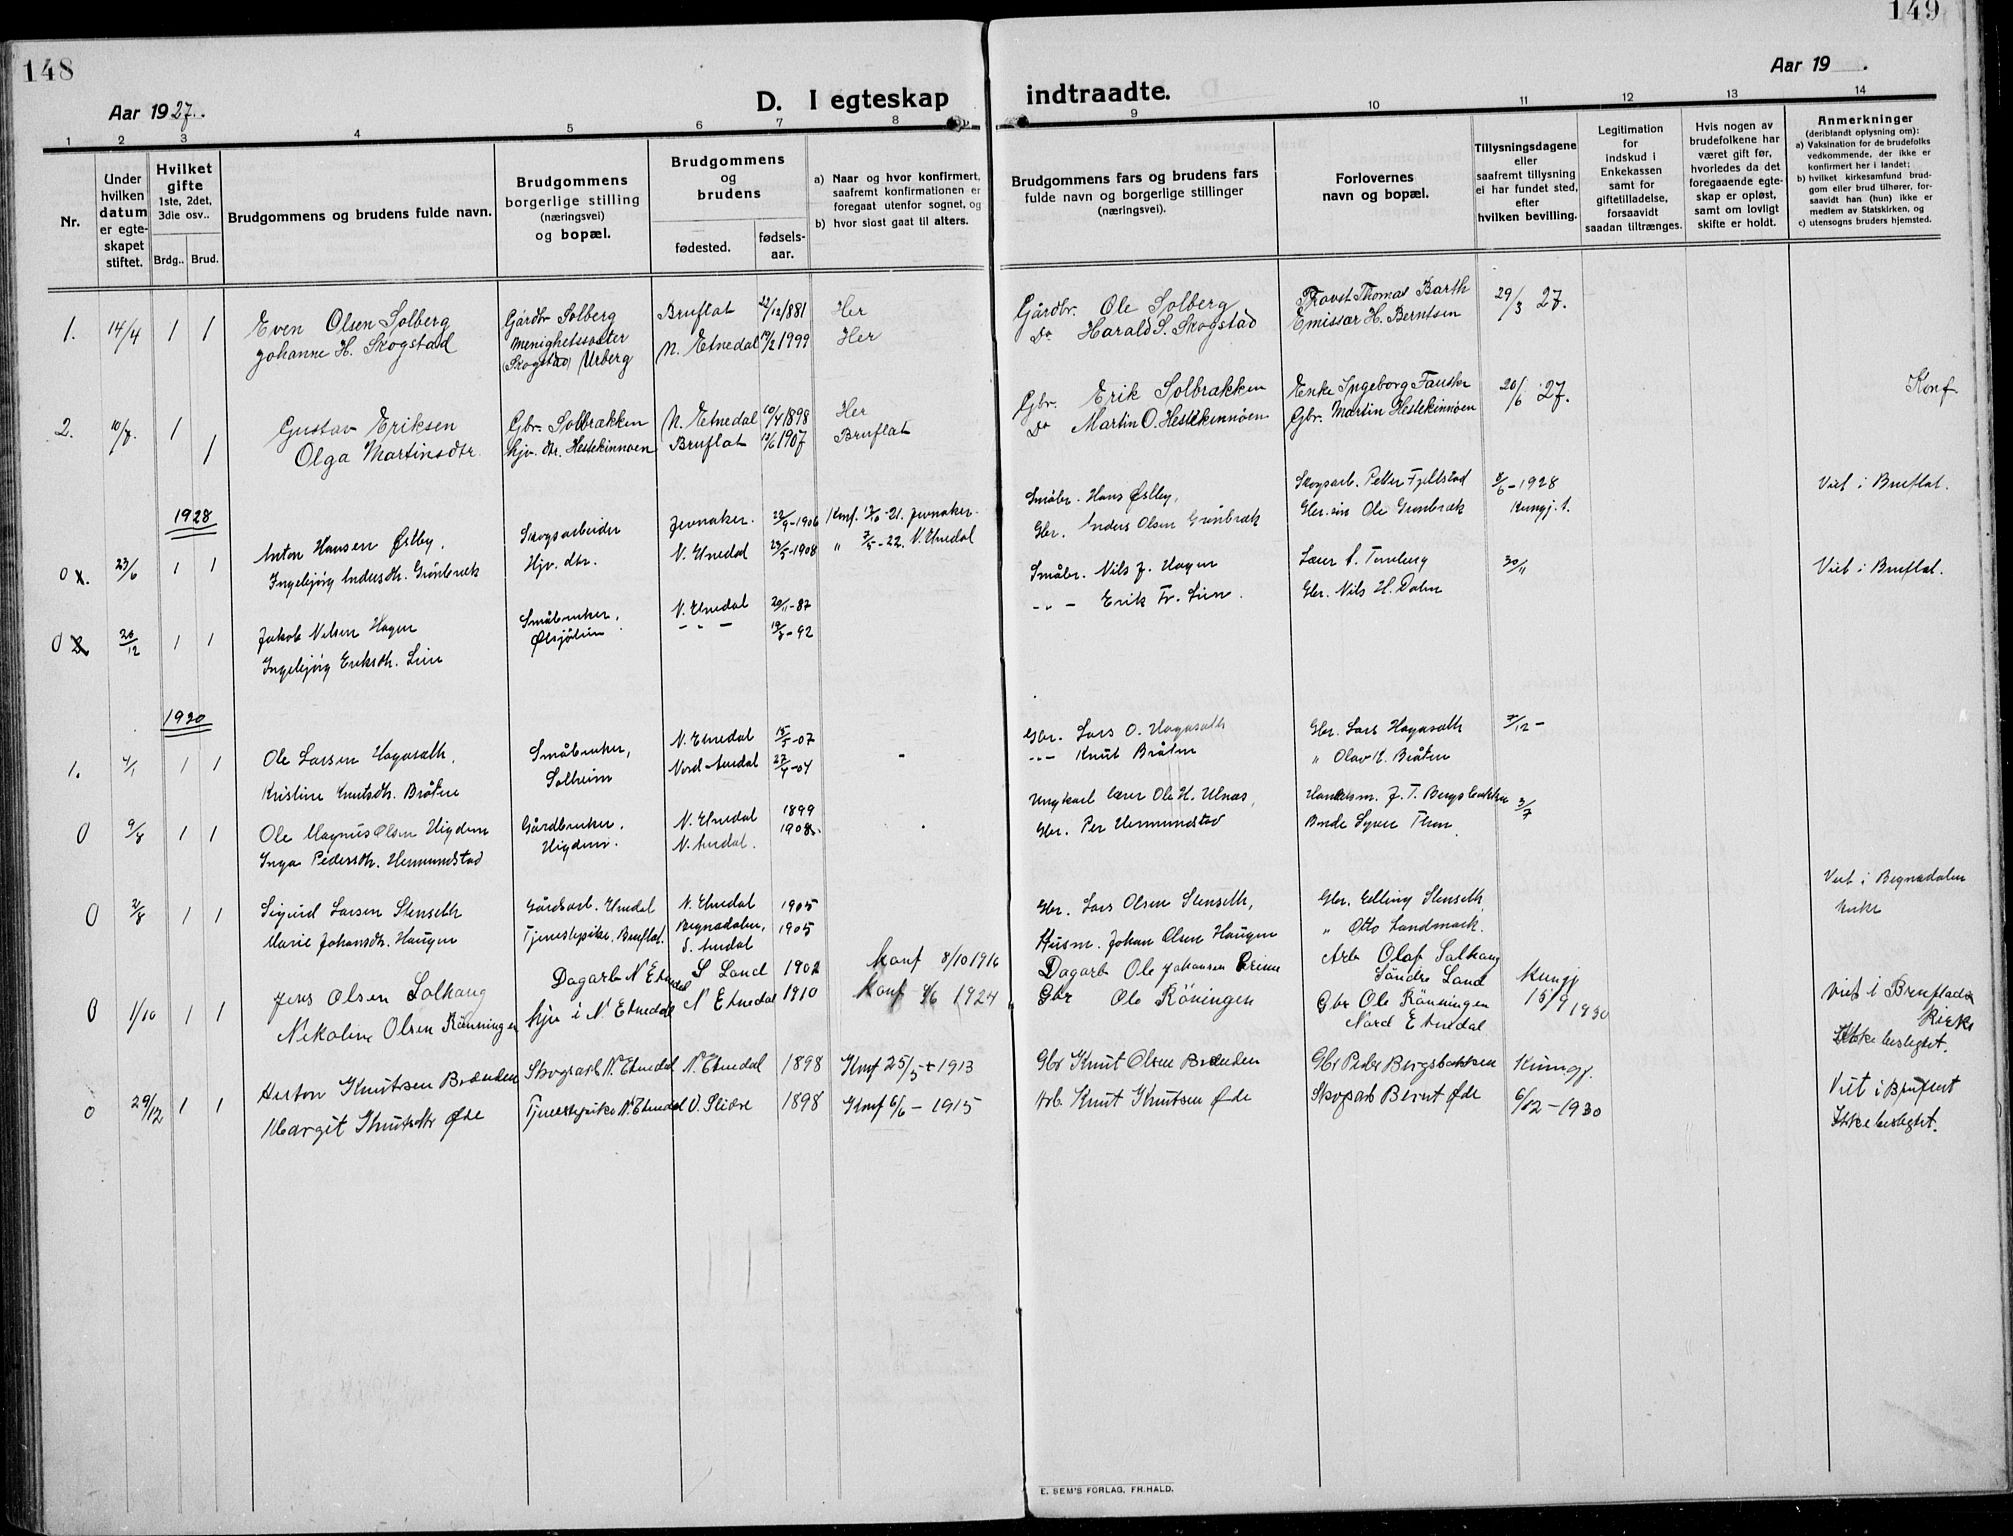 148
149
Aar 1927.
D. I egteskap indtraadte.
Aar 19 .
1 2 3 4 5 6 7 8 9 10 11 12 13 14
Nr.
Under hvilken datum er egteskapet stiftet.
Hvilket gifte 1ste, 2det, 3die osv..
Brdg.. Brud.
Brudgommens og brudens fulde navn.
Brudgommens borgerlige stilling (næringsvei) og bopæl.
Brudgommens og brudens
fødested. fødselsaar.
a) Naar og hvor konfirmert, saafremt konfirmationen er foregaat utenfor sognet, og
b) hvor sidst gaat til alters.
Brudgommens fars og brudens fars fulde navn og borgerlige stillinger (næringsvei).
Forlovernes navn og bopæl.
Tillysningsdagene eller saafremt tillysning ei har fundet sted, efter hvilken bevilling.
Legitimation for indskud i Enkekassen samt for giftetilladelse, forsaavidt saadan tiltrænges.
Hvis nogen av brudefolkene har været gift før, hvorledes da det foregaaende egteskap er opløst, samt om lovligt skifte er holdt.
Anmerkninger (deriblandt oplysning om):
a) Vaksination for de brudefolks vedkommende, der ikke er konfirmert her i landet;
b) hvilket kirkesamfund brudgom eller brud tilhører, forsaavidt han (hun) ikke er medlem av Statskirken, og
c) utensogns bruders hjemsted.
1. 14/4 1 1 Even Olsen Solberg Gårdbr Solberg Bruflat 22/12 1881 Her Gårdbr. Ole Solberg Provst Thomas Barth 29/3 27.
Johanne H. Skogstad Menighetssøster (Skogstad) Urberg N. Etnedal 19/2 1999 Her Do Harald S. Skogstad Emissær H. Berntsen
2. 10/7. 1 Gustav Eriksen Gbr. Solbrækken N. Etnedal 10/4 1898 Her Gbr. Erik Solbrækken Enke Ingeborg Fausker 20/6 27. Konf
1 Olga Martinsdtr. Hjv. dtr. Hestekinnøen Bruflat 12/6 1907 Bruflat Do Martin O. Hestekinnøen Gbr. Martin Hestekinnøen
1928
0 1. 23/6 1 1 Anton Hansen Østby. Skogsarbeider Jevnaker. 22/9-1906 Konf. 2/10-21. Jevnaker. Småbr. Hans Østby, Skogsarb. Petter Fjellstad 8/6-1928 Viet i Bruflat.
Ingebjørg Andersdtr. Grønbræk Hjv. dtr. N. Etnedal 23/5-1908 " 7/5-22. N. Etnedal Gbr. Anders Olsen Grønbræk Gbr. Ole Grønbræk Kungj. 1.
0 2. 26/12 1 1 Jakob Nilsen Hagen Småbruker, N. Etnedal 20/11-87 Småbr. Nils J. Hagen Lærer Tonsberg 30/11 Viet i Bruflat.
Ingebjørg Eriksdtr. Lien Ølsjølien - " - 19/8-92 - " - Erik Tr. Lien. Gbr. Nils H. Dalen
1930
1. 4/1 1 1 Ole Larsen Hagaseth. Småbruker, N. Etnedal 15/5-07 - Gbr. Lars O. Hagaseth Gbr. Lars Hagaseth 7/12 -
Kristine Knutsdtr. Bråten Solheim Nord-Aurdal 27/4-04 - " - Knut Bråten " Olav K. Bråten
0 9/8 1 1 Ole Magnus Olsen Higdem Gårdbruker. N. Etnedal 1899 . Ungkarl lærer Ole H. Ulnæs, Handelsm. J. T. Bergsbakken 3/7
Inga Pedersdtr. Hermundstad Higdem. N. Aurdal. 1908. Gbr. Per Hermundstad Bonde Syver Thon
0 2/8 1 1 Sigurd Larsen Slenseth Gårdsarb. Etnedal N. Etnedal 1905 Gbr. Lars Olsen Slenseth, Gbr. Elling Slenseth Viet i Begnadalen
Marie Johansdtr. Haugen Tjenestepike, Bruflat. Begnadalen, S. Aurdal 1905 Husm. Johan Olsen Haugen " Otto Landmark. kirke
0 1/10 1 1 Jens Olsen Solhaug Dagarb N Etnedal S Land 1902 Konf 8/10 1916 Dagarb Ole Johansen Olaf Solhaug Søndre Land Kungj Viet i Bruflat kirke
Nikoline Olsen Rønningen hjv i N. Etnedal N Etnedal 1910 Konf 9/6 1924 Gbr Ole Røningen Gbr Ole Rønningen Nord Etnedal 15/9 1930 Ikke beslegtet.
0 29/12 1 1 Knutsen Brænden Skogsarb N. Etnedal N. Etnedal 1898 Konf 25/5 1913 Gbr Knut Olsen Brenden Gbr Peder Bergsbakken Kungj. Viet i Bruflat
Margit Knutsdtr Øde Tjenestepike N. Etnedal V. Slidre 1898 Konf 6/6 - 1915 Arb. Knut Knutsen Øde Skogsarb Bernt Øde 6/12-1930 Ikke beslegtet.
E. SEM'S FORLAG. FR.HALD.